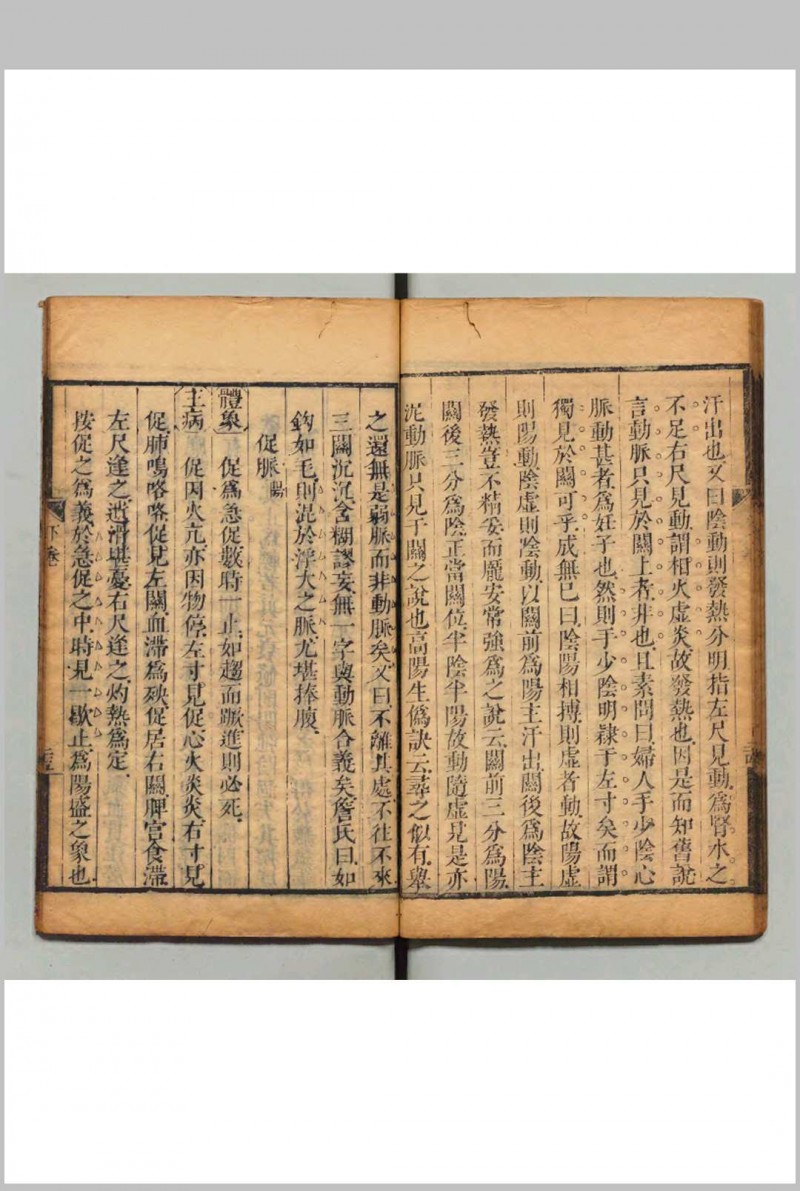 汗出也又曰陰動則發熱分明指左尺見動爲腎水之
不足右尺見動謂相火虛炎故發熱也因是而知舊說
言動脈只見於關上者非也且素問曰婦人手少陰心
脈動甚者爲妊子也然則手少陰明隸于左寸矣而謂
獨見於關可乎成無已曰陰陽相搏則虛者動故陽虛
則陽動陰虛則陰動以關前爲陽主汗出關後爲陰主
發熱豈不精妥而龐安常強爲之說云關前三分爲陽
關後三分爲陰正當關位半陰半陽故動隨虛見是亦
泥動脈只見于關之說也高陽生僞訣云尋之似有舉
之還無是弱脈而非動脈矣又曰不離其處不往不來
三關沉沉含糊謬妄無一字與動脈合義矣詹氏曰如
鉤如毛則混於浮大之脈尤堪捧腹
促脈 陽
體象 促爲急促數時一止如趨而蹶進則必死
主病 促因火亢亦因物停左寸見促心火炎炎右寸見
促肺鳴咯咯促見左關血滯爲殃促居右關脾宮食滯
左尺逢之遺滑堪憂右尺逢之灼熱爲定
按促之爲義於急促之中時見一歇止爲陽盛之象也
下卷